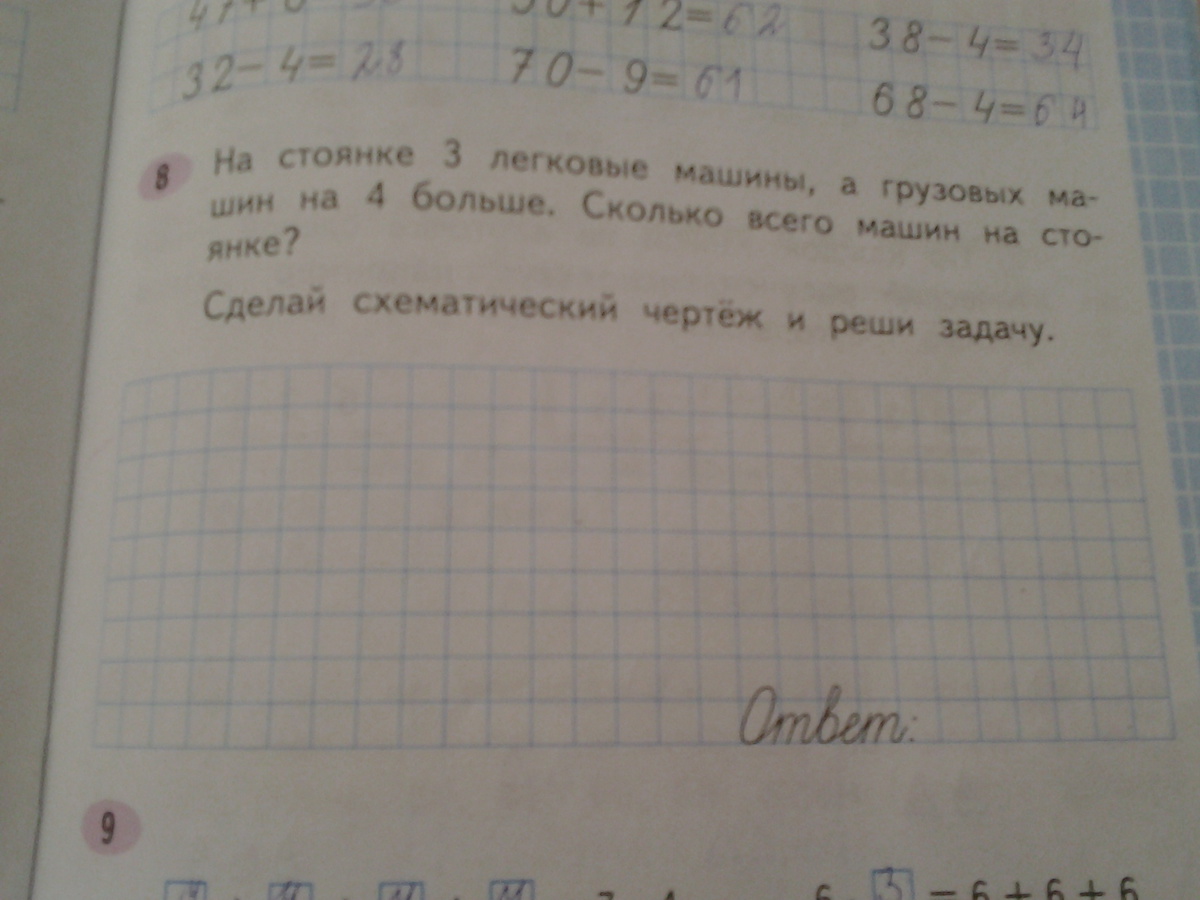 12=62
38-4=34
32-4=28
70-9=61
68-4=64
8 На стоянке 3 легковые машины, а грузовых ма-
шин на 4 больше. Сколько всего машин на сто-
янке?
Сделай схематический чертёж и реши задачу.
Ответ:
9
3 = 6 + 6 + 6